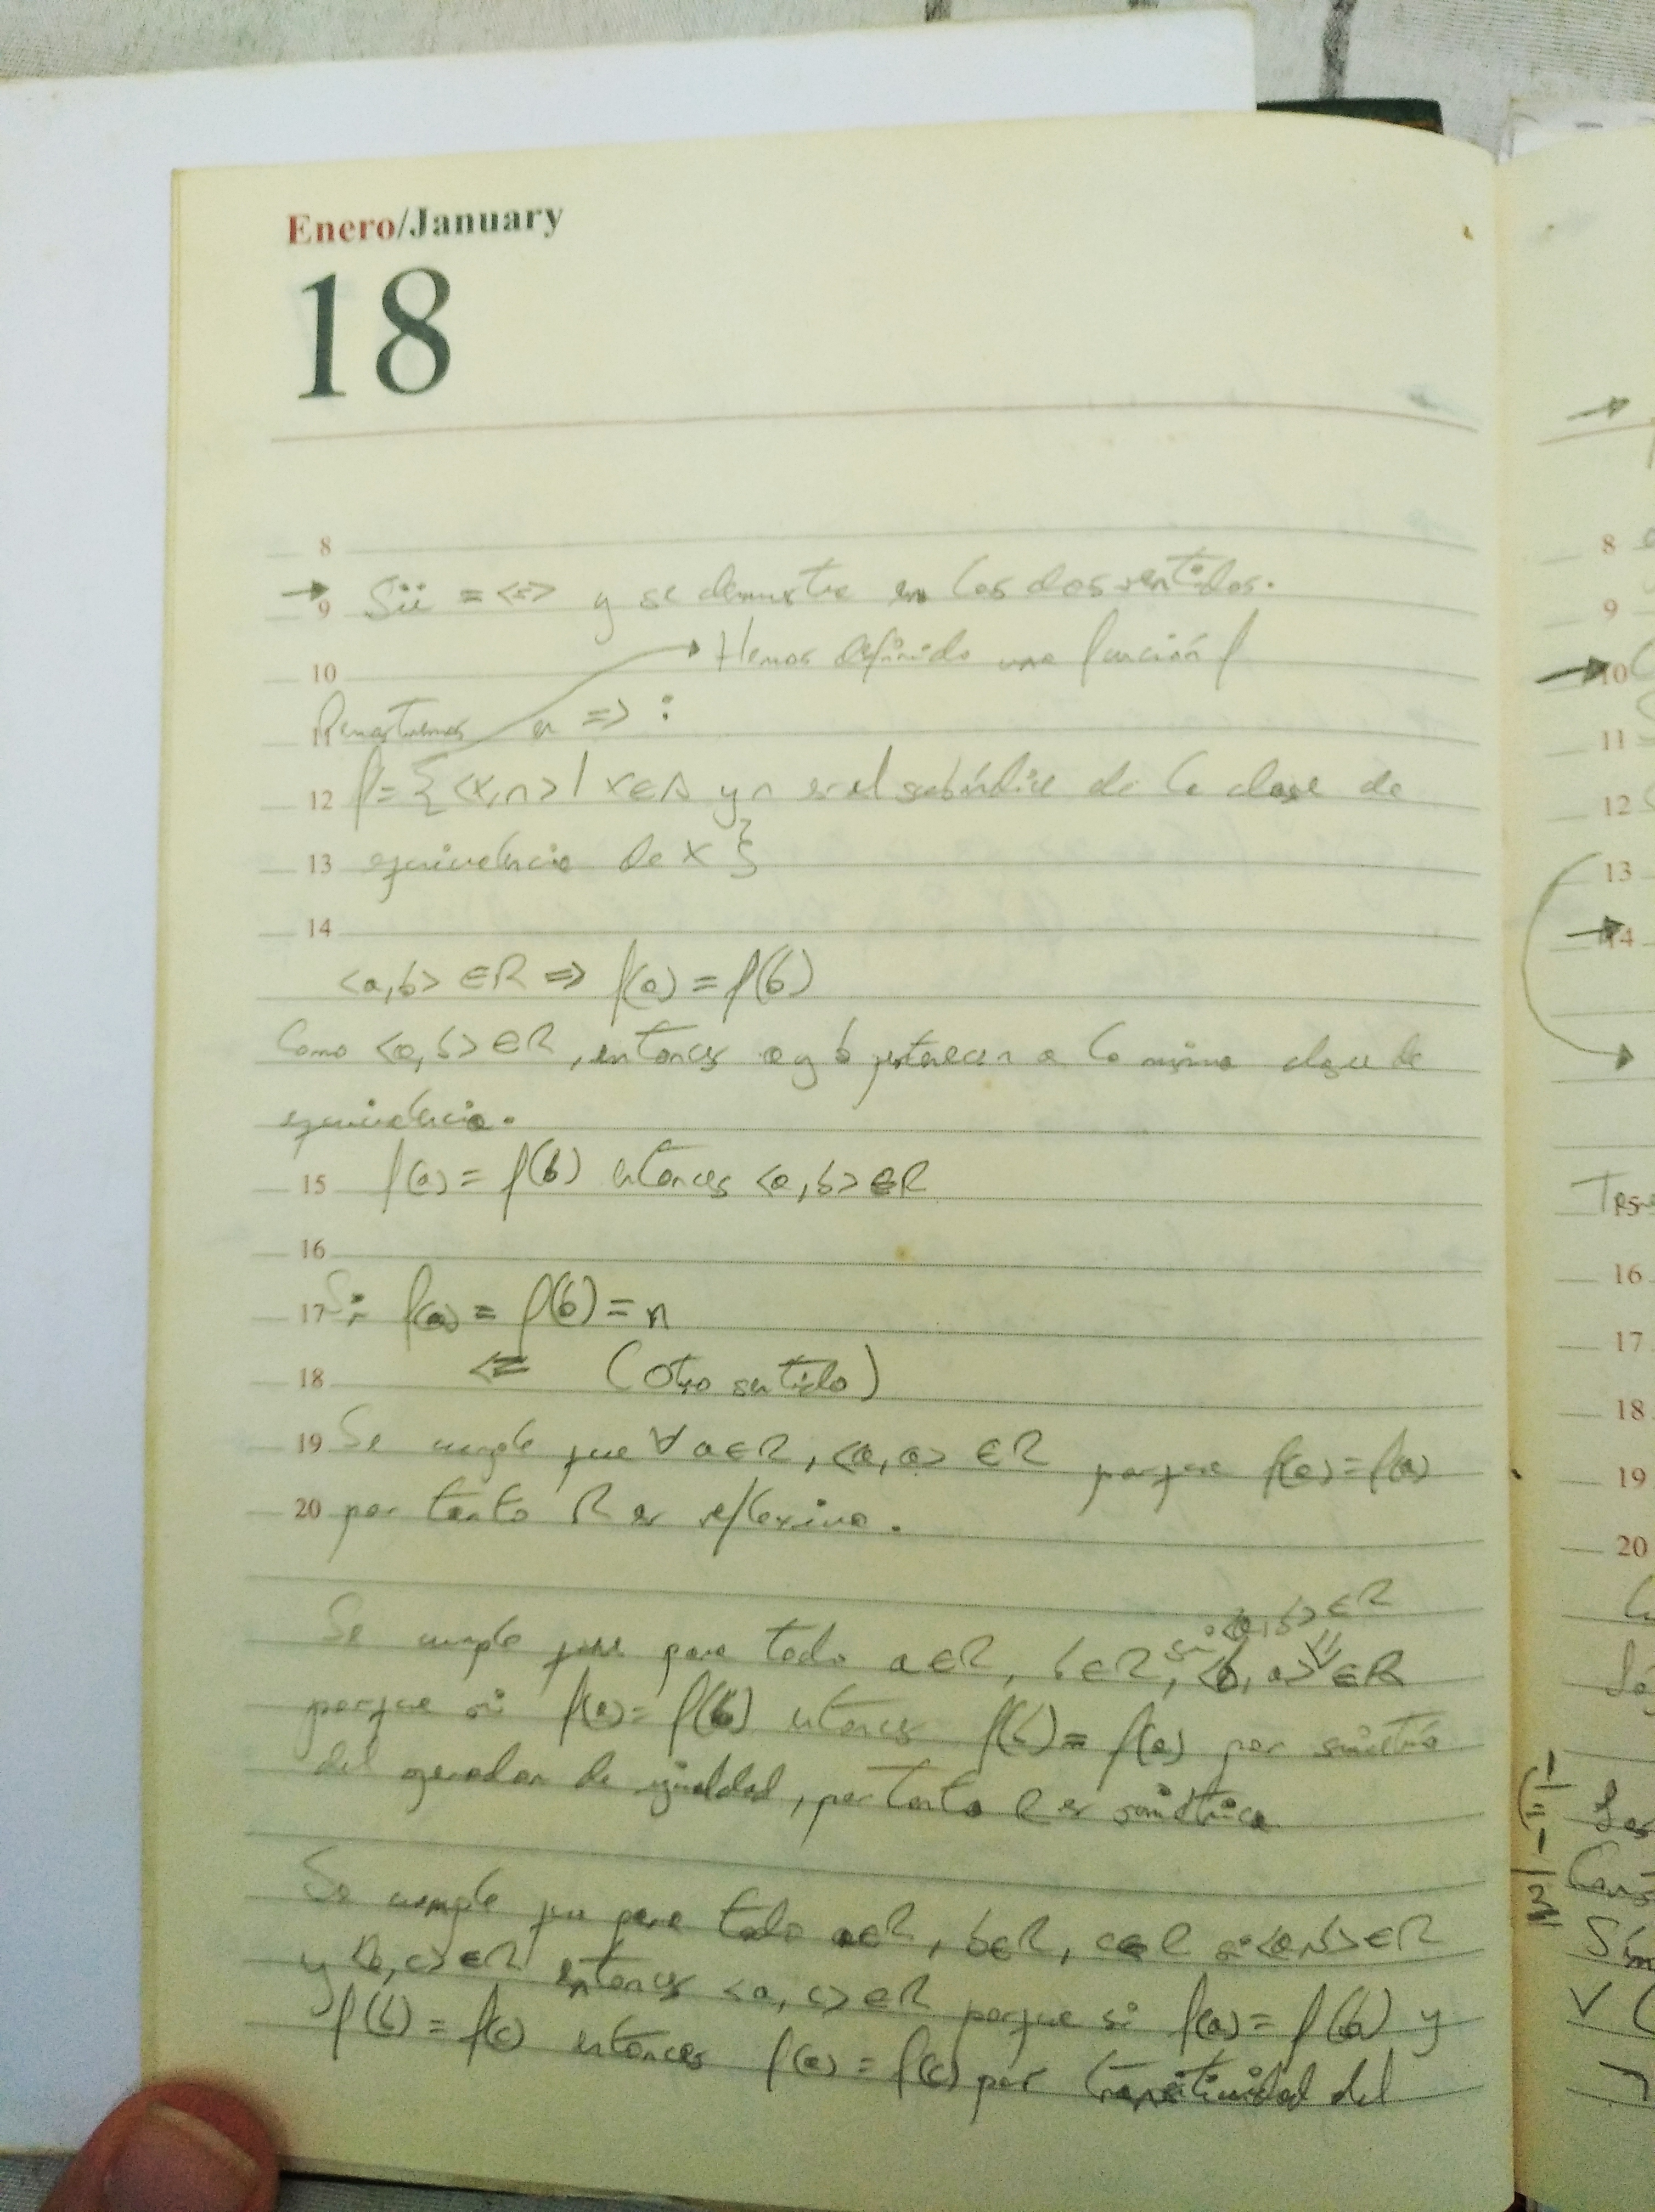 Enero/January
18
8
→ 9 Sii = <=> y se demuestra en los dos sentidos.
10 → Hemos definido una función f
11 Demostremos en => :
12 f = { <x,n> | x∈A y n es el subíndice de la clase de
13 equivalencia de x }
14
<a,b> ∈R => f(a) = f(b)
Como <a,b> ∈R, entonces a y b pertenecen a la misma clase de
equivalencia.
15 f(a) = f(b) entonces <a,b> ∈R
16
17 Si f(a) = f(b) = n
18 <= (Otro sentido)
19 Se cumple que ∀ a∈R, <a,a> ∈R porque f(a) = f(a)
20 por tanto R es reflexiva.
si <a,b> ∈R
Se cumple que para todo a∈R, b∈R, <b,a> ∈R
porque si f(a) = f(b) entonces f(b) = f(a) por simetría
del operador de igualdad, por tanto R es simétrica
Se cumple que para todo a∈R, b∈R, c∈R si <a,b> ∈R
y <b,c> ∈R entonces <a,c> ∈R porque si f(a) = f(b) y
f(b) = f(c) entonces f(a) = f(c) por transitividad del
8
9
10
11
12
13
14
16
17
18
19
20